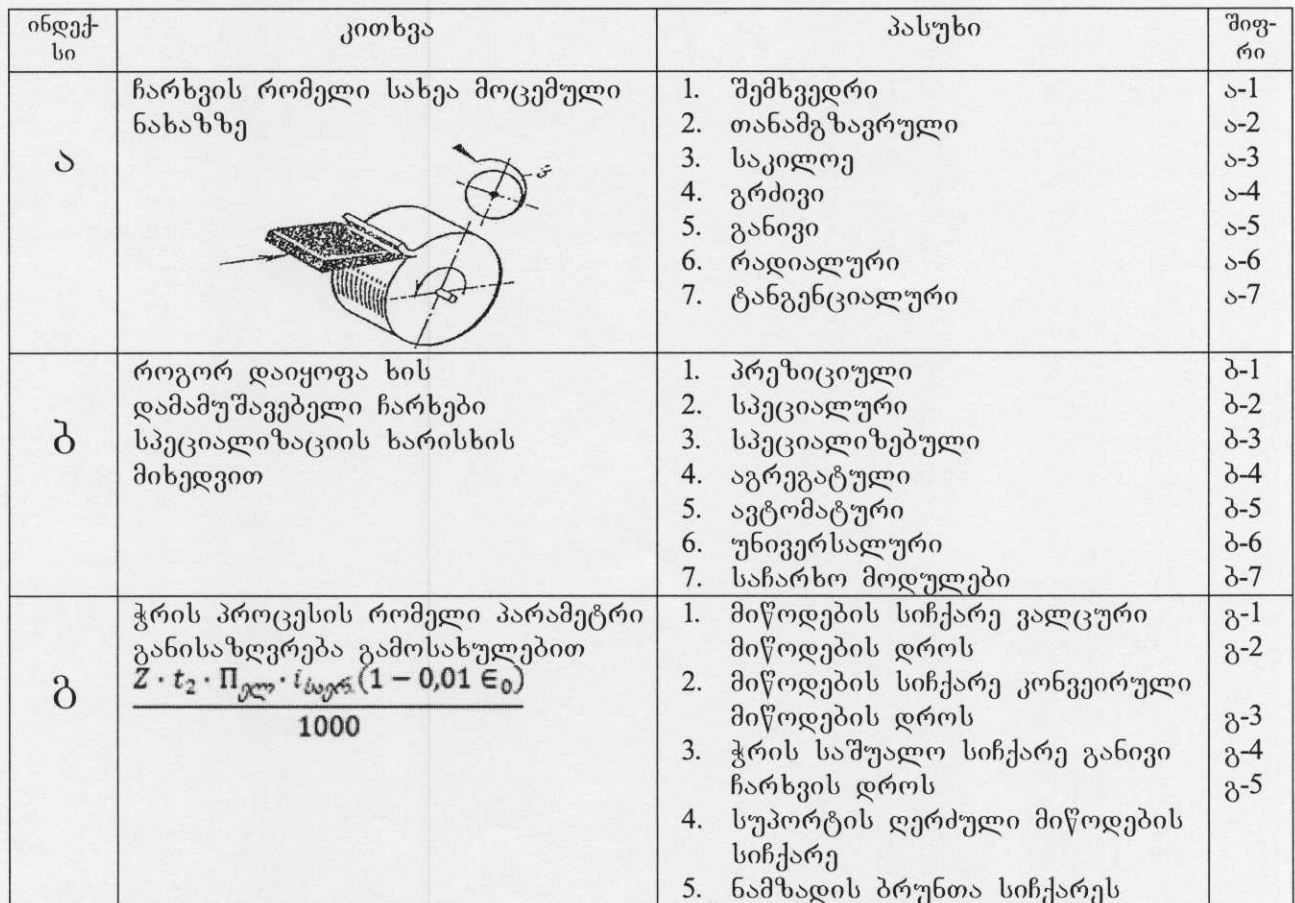 ინდექ-
სი
კითხვა
პასუხი
შიფ-
რი
ა
ჩარხვის რომელი სახეა მოცემული
ნახაზზე
1. შემხვედრი
2. თანამგზავრული
3. საკილოე
4. გრძივი
5. განივი
6. რადიალური
7. ტანგენციალური
ა-1
ა-2
ა-3
ა-4
ა-5
ა-6
ა-7
ბ
როგორ დაიყოფა ხის
დამამუშავებელი ჩარხები
სპეციალიზაციის ხარისხის
მიხედვით
1. პრეზიციული
2. სპეციალური
3. სპეციალიზებული
4. აგრეგატული
5. ავტომატური
6. უნივერსალური
7. საჩარხო მოდულები
ბ-1
ბ-2
ბ-3
ბ-4
ბ-5
ბ-6
ბ-7
გ
ჭრის პროცესის რომელი პარამეტრი
განისაზღვრება გამოსახულებით
Z · t₂ · Π ელ · i საერ. (1 − 0,01 ∈₀)
1000
1. მიწოდების სიჩქარე ვალცური
მიწოდების დროს
2. მიწოდების სიჩქარე კონვეირული
მიწოდების დროს
3. ჭრის საშუალო სიჩქარე განივი
ჩარხვის დროს
4. სუპორტის ღერძული მიწოდების
სიჩქარე
5. ნამზადის ბრუნთა სიჩქარეს
გ-1
გ-2
გ-3
გ-4
გ-5